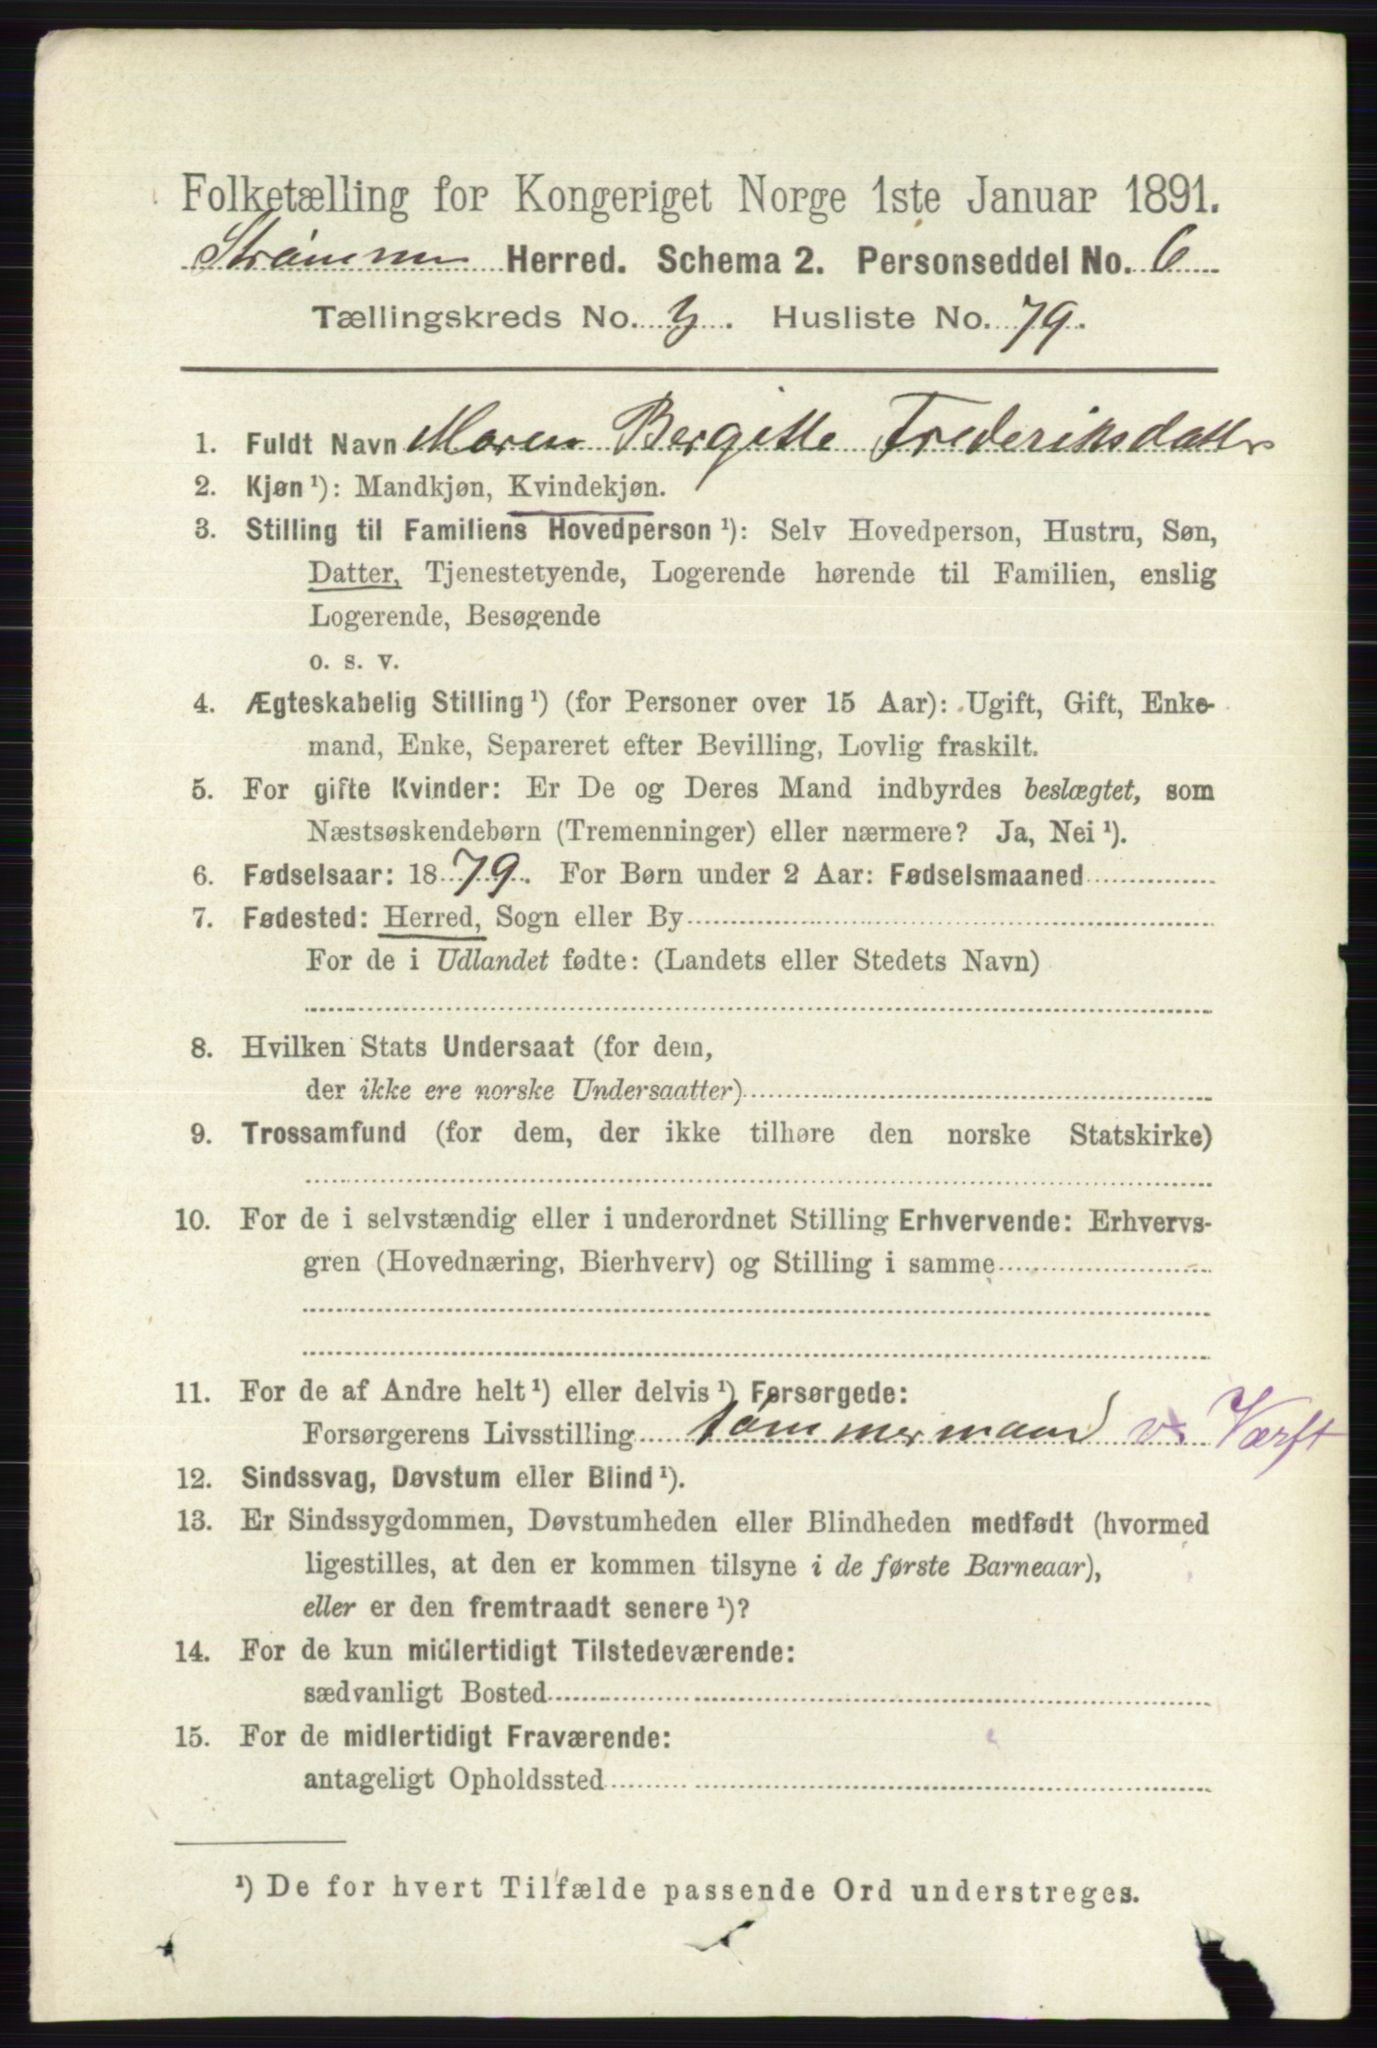 Folketælling for Kongeriget Norge 1ste Januar 1891.
Strømmen Herred. Schema 2. Personseddel No. 6
Tællingskreds No. 3. Husliste No. 79.
1. Fuldt Navn Maren Bergitte Frederiksdatter
2. Kjøn ¹): Mandkjøn, Kvindekjøn.
3. Stilling til Familiens Hovedperson ¹): Selv Hovedperson, Hustru, Søn,
Datter, Tjenestetyende, Logerende hørende til Familien, enslig
Logerende, Besøgende
o. s. v.
4. Ægteskabelig Stilling ¹) (for Personer over 15 Aar): Ugift, Gift, Enke-
mand, Enke, Separeret efter Bevilling, Lovlig fraskilt.
5. For gifte Kvinder: Er De og Deres Mand indbyrdes beslægtet, som
Næstsøskendebørn (Tremenninger) eller nærmere? Ja, Nei ¹).
6. Fødselsaar: 1879. For Børn under 2 Aar: Fødselsmaaned
7. Fødested: Herred, Sogn eller By
For de i Udlandet fødte: (Landets eller Stedets Navn)
8. Hvilken Stats Undersaat (for dem,
der ikke ere norske Undersaatter)
9. Trossamfund (for dem, der ikke tilhøre den norske Statskirke)
10. For de i selvstændig eller i underordnet Stilling Erhvervende: Erhvervs-
gren (Hovednæring, Bierhverv) og Stilling i samme
11. For de af Andre helt ¹) eller delvis ¹) Forsørgede:
Forsørgerens Livsstilling tømmermand v. Værft
12. Sindssvag, Døvstum eller Blind ¹).
13. Er Sindssygdommen, Døvstumheden eller Blindheden medfødt (hvormed
ligestilles, at den er kommen tilsyne i de første Barneaar),
eller er den fremtraadt senere ¹)?
14. For de kun midlertidigt Tilstedeværende:
sædvanligt Bosted
15. For de midlertidigt Fraværende:
antageligt Opholdssted
¹) De for hvert Tilfælde passende Ord understreges.